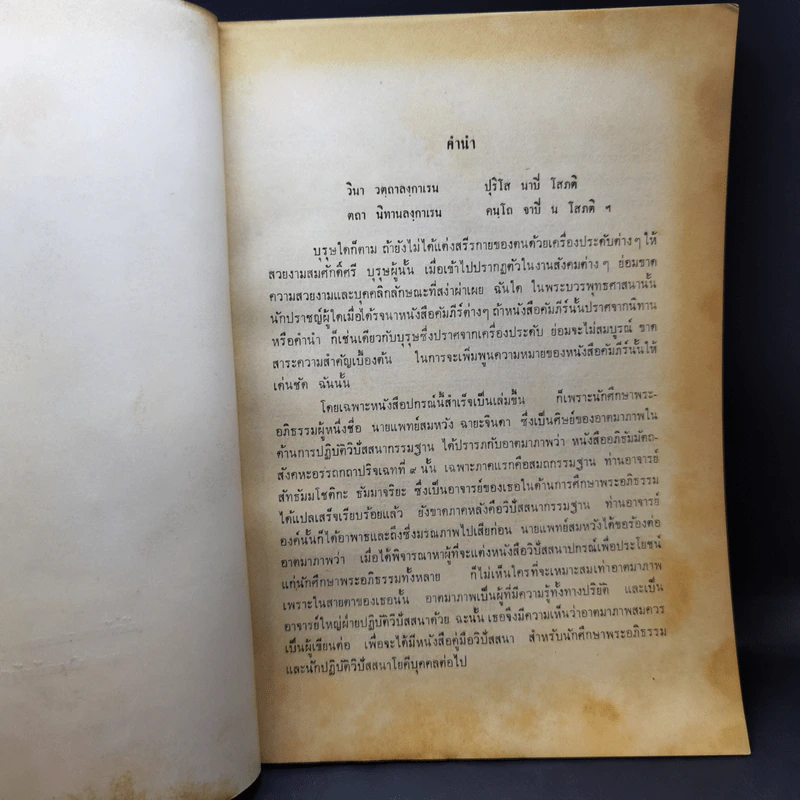 คำนำ
วินา วตฺถาลงฺกาเรน ปุริโส นาปี โสภติ
ตถา นิทานลงฺกาเรน คนฺโถ จาปี น โสภติ ฯ
บุรุษใดก็ตาม ถ้ายังไม่ได้แต่งสรีรกายของตนด้วยเครื่องประดับต่างๆ ให้
สวยงามสมศักดิ์ศรี บุรุษผู้นั้น เมื่อเข้าไปปรากฏตัวในงานสังคมต่างๆ ย่อมขาด
ความสวยงามและบุคคลิกลักษณะที่สง่าผ่าเผย ฉันใด ในพระบวรพุทธศาสนานั้น
นักปราชญ์ผู้ใดเมื่อได้รจนาหนังสือคัมภีร์ต่างๆ ถ้าหนังสือคัมภีร์นั้นปราศจากนิทาน
หรือคำนำ ก็เช่นเดียวกับบุรุษซึ่งปราศจากเครื่องประดับ ย่อมจะไม่สมบูรณ์ ขาด
สาระความสำคัญเบื้องต้น ในการจะเพิ่มพูนความหมายของหนังสือคัมภีร์นั้นให้
เด่นชัด ฉันนั้น
โดยเฉพาะหนังสือปกรณ์นี้สำเร็จเป็นเล่มขึ้น ก็เพราะนักศึกษาพระ-
อภิธรรมผู้หนึ่งชื่อ นายแพทย์สมหวัง ฉายะจินดา ซึ่งเป็นศิษย์ของอาตมาภาพใน
ด้านการปฏิบัติวิปัสสนากรรมฐาน ได้ปรารภกับอาตมาภาพว่า หนังสืออภิธัมมัตถ-
สังคหะอรรถกถาปริจเฉทที่ ๙ นั้น เฉพาะภาคแรกคือสมถกรรมฐาน ท่านอาจารย์
สัทธัมมโชติกะ ธัมมาจริยะ ซึ่งเป็นอาจารย์ของเธอในด้านการศึกษาพระอภิธรรม
ได้แปลเสร็จเรียบร้อยแล้ว ยังขาดภาคหลังคือวิปัสสนากรรมฐาน ท่านอาจารย์
องค์นั้นก็ได้อาพาธและถึงซึ่งมรณภาพไปเสียก่อน นายแพทย์สมหวังได้ขอร้องต่อ
อาตมาภาพว่า เมื่อได้พิจารณาหาผู้ที่จะแต่งหนังสือวิปัสสนาปกรณ์เพื่อประโยชน์
แก่นักศึกษาพระอภิธรรมทั้งหลาย ก็ไม่เห็นใครที่จะเหมาะสมเท่าอาตมาภาพ
เพราะในสายตาของเธอนั้น อาตมาภาพเป็นผู้ที่มีความรู้ทั้งทางปริยัติ และเป็น
อาจารย์ใหญ่ฝ่ายปฏิบัติวิปัสสนาด้วย ฉะนั้น เธอจึงมีความเห็นว่าอาตมาภาพสมควร
เป็นผู้เขียนต่อ เพื่อจะได้มีหนังสือคู่มือวิปัสสนา สำหรับนักศึกษาพระอภิธรรม
และนักปฏิบัติวิปัสสนาโยคีบุคคลต่อไป